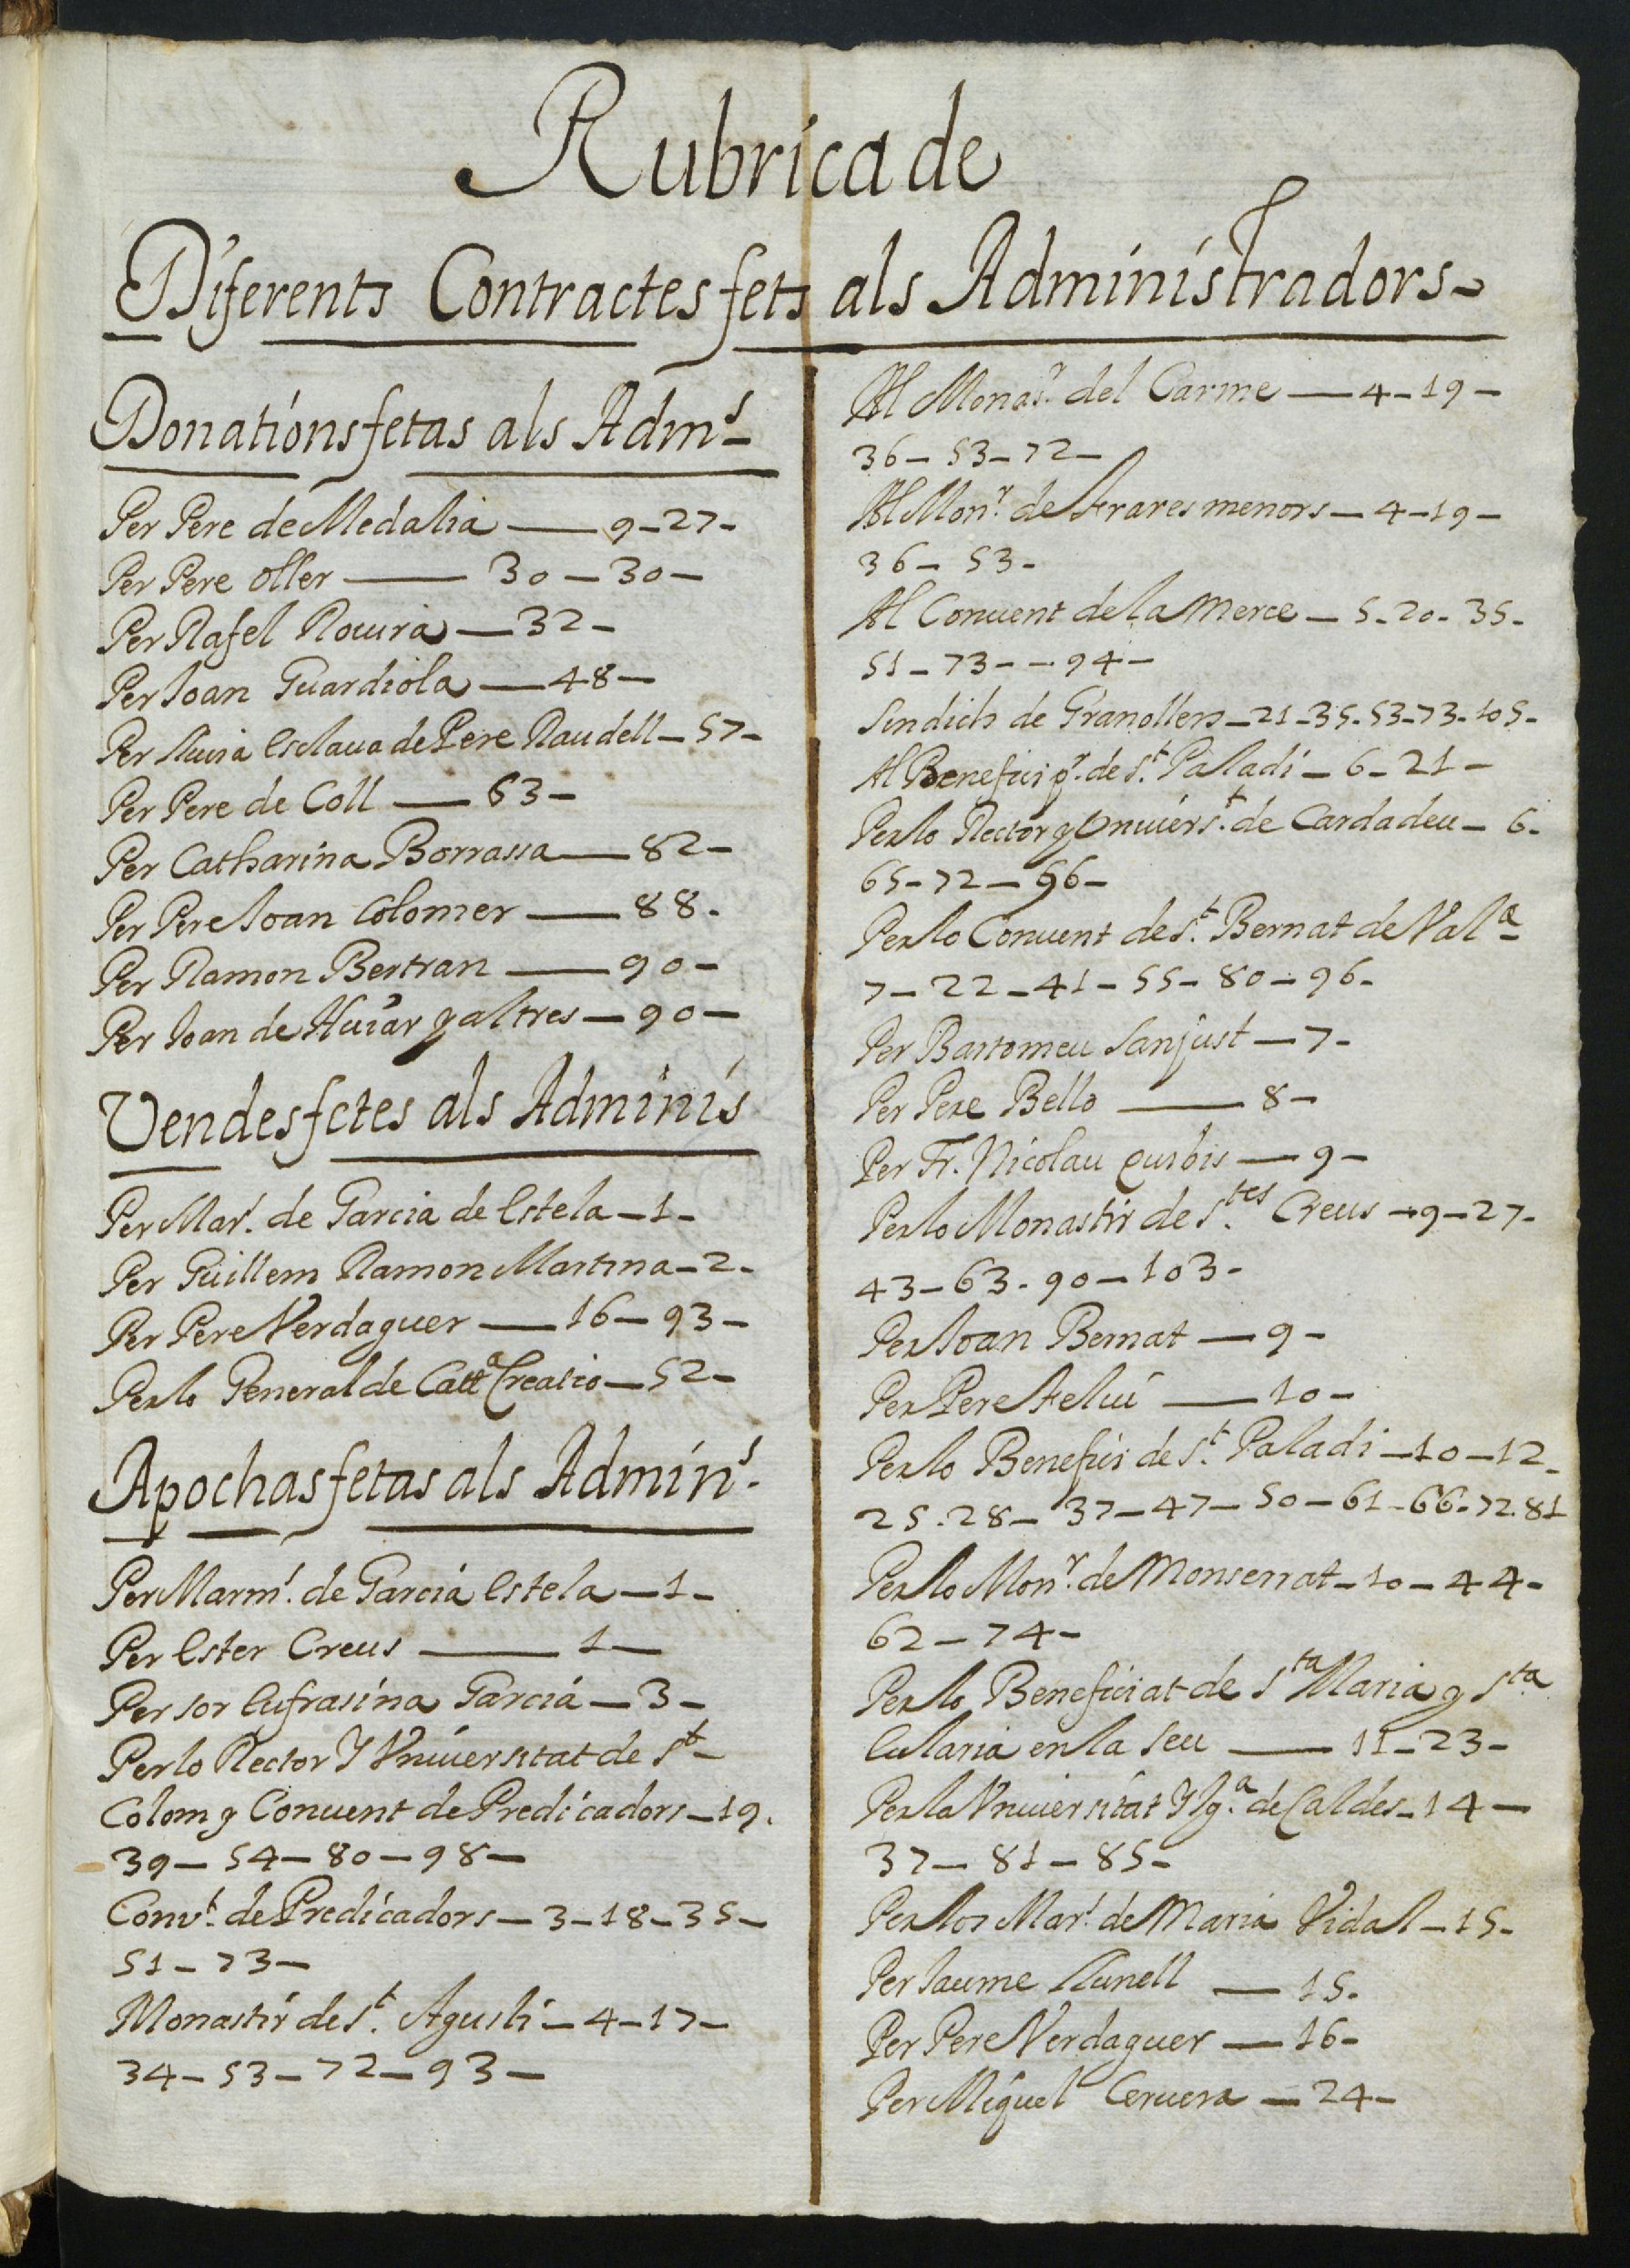 Rubrica de
Diferents Contractes fets als Administradors-
Donations fetas als Adm.s
Per Pere de Medalia — 9-27-
Per Pere oller — 30-30-
Per Rafel Rouira — 32-
Per Joan Guardiola — 48-
Per lluisa Esclaua de Pere Raudell - 57-
Per Pere de Coll — 63-
Per Catharina Borrassa — 82-
Per Pere Joan Colomer — 88.
Per Ramon Bertran — 90-
Per Joan de y altres - 90-
Vendes fetes als Adminis
Per Mar.s de Garcia de Estela - 1-
Per Guillem Ramon Martina - 2-
Per Pere Verdaguer — 16-93-
Per lo General de Catt.a Creatio - 52-
Apochas fetas als Admin.s
Per Marm.s de Garcia Estela - 1-
Per Ester Creus — 1-
Per sor Eufrasina Garcia - 3-
Per lo Rector Y Vniuersitat de S.t
Colom y Conuent de Predicadors - 19.
39-54-80-98-
Conv.t de Predicadors - 3-18-35-
51-73-
Monastir de S.t Agusti - 4-17-
34-53-72-93-
Al Monas.r del Carme — 4-19-
36-53-72-
Al Mon.r de frares menors - 4-19-
36-53-
Al Conuent de la Merce - 5-20-35-
51-73--94-
Sindichs de Granollers - 21-35-53-73-105-
Al Benefici p.r de S.t Paladi - 6-21-
Per lo Rector y Vniuers.t de Cardadeu - 6-
65-72-96-
Per lo Conuent de S.t Bernat de Val.a
7-22-41-55-80-96-
Per Bartomeu Sanjust - 7-
Per Pere Bello — 8-
Per Fr. Nicolau - 9-
Per lo Monastir de S.tes Creus - 9-27-
43-63-90-103-
Per Joan Bernat - 9-
Per Pere feliu — 10-
Per lo Benefici de S.t Paladi - 10-12-
25.28-37-47-50-61-66-72.81
Per lo Mon.r de Monserrat - 10-44-
62-74-
Per lo Beneficiat de S.ta Maria y S.ta
Eularia en la Seu — 11-23-
Per la Vniuersitat Y Ig.a de Caldes - 14-
37-81-85-
Per los Mar.s de Maria Vidal - 15-
Per Jaume llunell — 15.
Per Pere Verdaguer — 16-
Per Miquel Ceruera - 24-